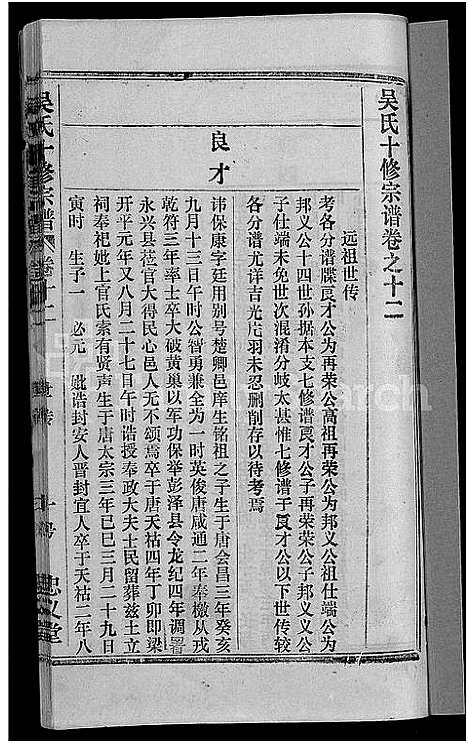 吴氏十修宗谱卷之十二
远祖世传
考各分谱牒良才公为再荣公高祖再荣公为邦义公祖仕端公为
邦义公十四世孙据本支七修谱良才公子再荣荣公子邦义义公
子仕端未免世次混淆分岐太甚惟七修谱于良才公以下世传较
各分谱尤详吉光片羽未忍删削存以待考焉
良才
讳保康字廷用别号楚卿邑庠生铭祖之子生于唐会昌三年癸亥
九月十三日午时公智勇兼全为一时英俊唐咸通二年奉檄从戎
乾符三年率士卒大破黄巢以军功保举彭泽县令龙纪四年调署
永兴县莅官大得民心邑人无不颂焉卒于唐天祜四年丁卯即梁
开平元年又八月二十七日午时诰授奉政大夫士民留葬兹土立
祠奉祀妣上官氏索有贤声生于唐太宗三年已巳三月二十九日
寅时 生子一 必元 妣诰封安人晋封宜人卒于天祜二年八
吴氏十修宗谱 卷十二 世传 一号 忠义堂